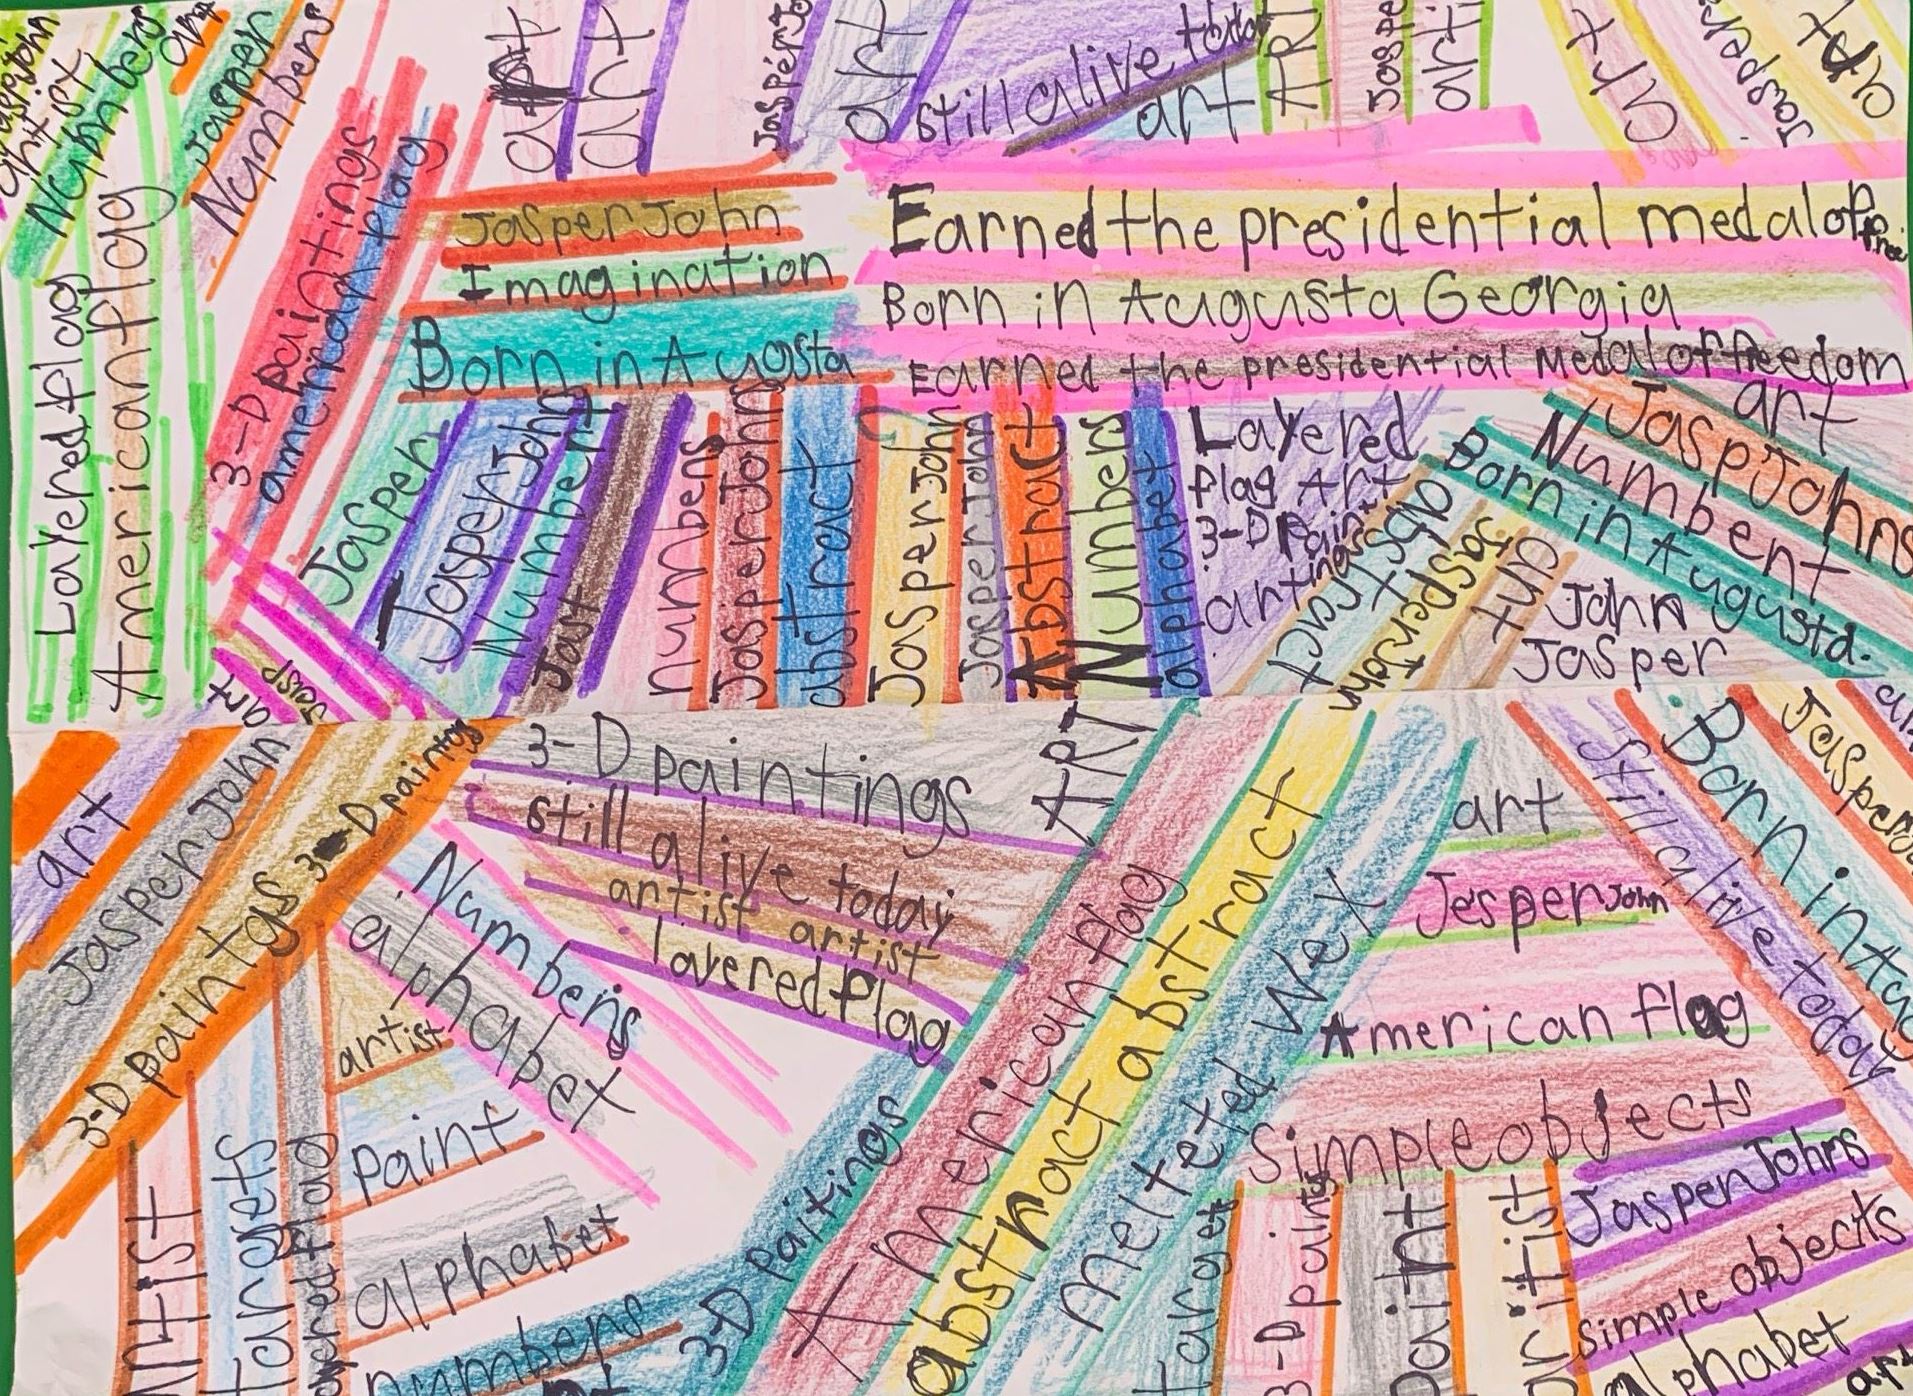 Numbers
art
Jasper
Numbers
art
art
art
still alive today
art
ART
art
art
art
Layered flag
American flag
3-D paintings
american flag
Jasper John
Imagination
Born in Augosta
Earned the presidential medal of free
Born in Augusta Georgia
Earned the presidential Medal of freedom
Jasper
Jasper John
Number
Jast
numbers
Jasper John
abstract
Jasper John
Jasper John
Abstract
Numbers
alphabet
Layered
flag Art
3-D Paint
abstract
Jasper John
art
art
Jasp Johns
Number
Born in Augusta.
John
Jasper
art
Jasp
art
Jasper John
3-D paintgs
3-D paintgs
3-D paintings
still alive today
artist artist
layered flag
ART
Numbers
alphabet
artist
paint
alphabet
numbers
Artist
targets
layered flag
3-D paitings
American flag
abstract abstract
melted wex
art
Jesper John
American flag
Simple objects
still alive today
Born in Au
Jasper
target
3-D paintgs
paint
artist
Jasper Johns
simple objects
alphabet
art